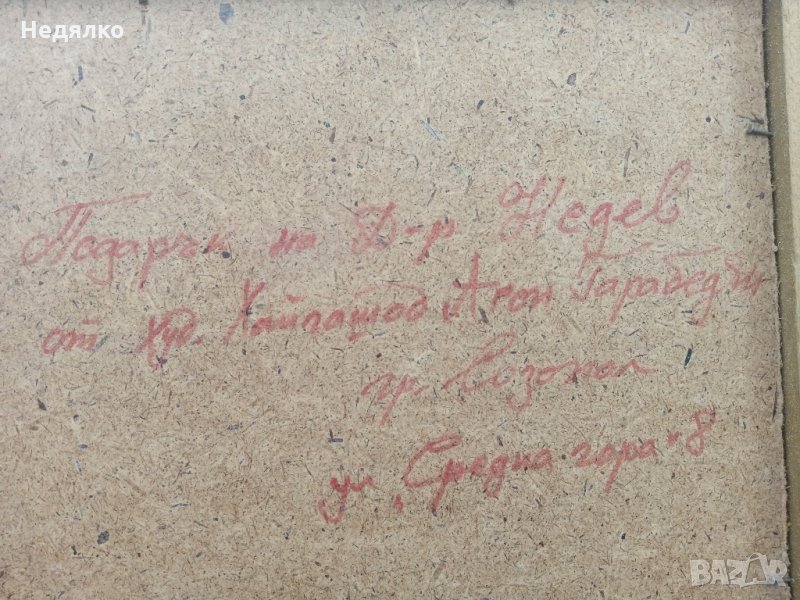 Недялко
Подарък на Д-р Недев
от Худ. Агоп Гарабедян
гр. Созопол
ул. „Средна гора" 8
BAZAR